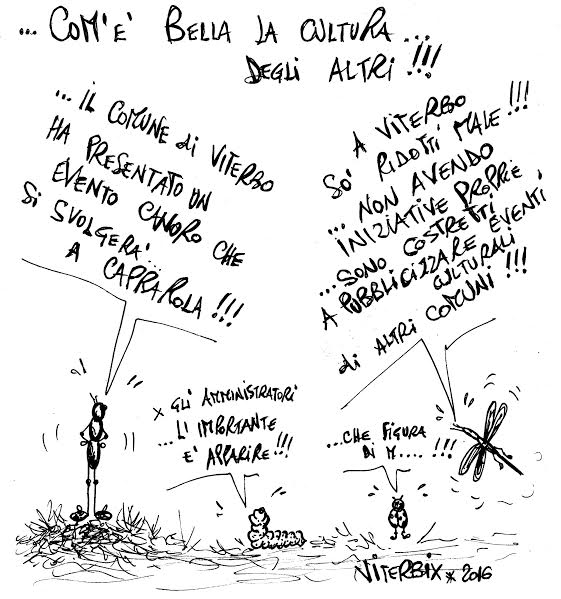 ... COM'E' BELLA LA CULTURA...
DEGLI ALTRI!!!
... IL COMUNE di VITERBO
HA PRESENTATO UN
EVENTO CANORO CHE
SI SVOLGERA'...
A CAPRAROLA!!!
A VITERBO
SO' RIDOTTI MALE!!!
... NON AVENDO
INIZIATIVE PROPRIE
...SONO COSTRETTI
A PUBBLICIZZARE EVENTI
CULTURALI
di ALTRI COMUNI!!!
x GLI AMMINISTRATORI
...L'IMPORTANTE
E' APPARIRE!!!
...CHE FIGURA
DI M.... !!!
VITERBIX * 2016